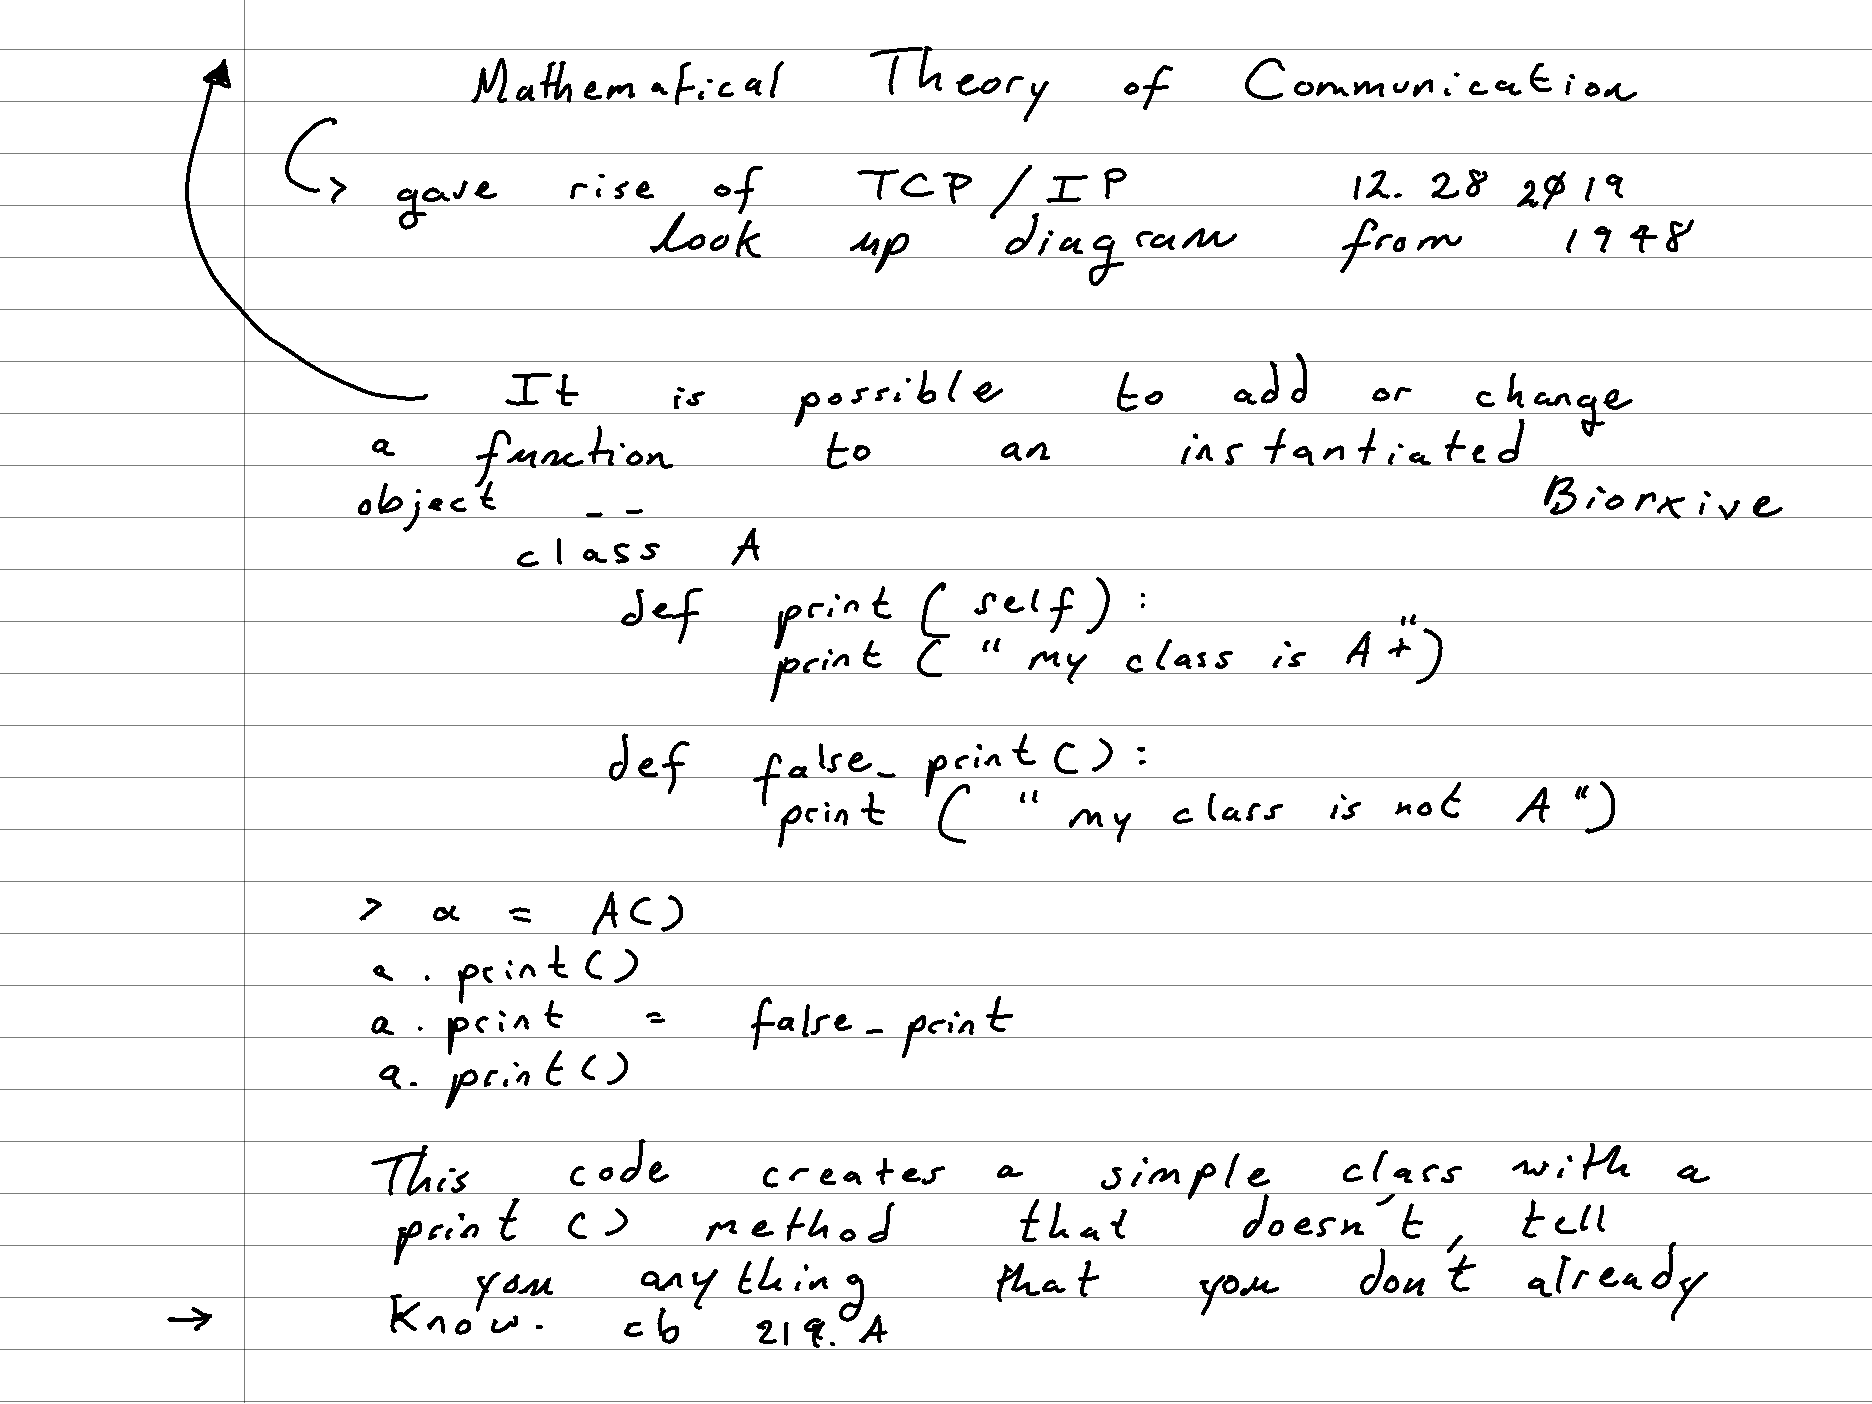 Mathematical Theory of Communication
gave rise of TCP/IP 12. 28 2019
look up diagram from 1948
It is possible to add or change
a function to an instantiated
object _ _ Biorxive
class A
def print ( self ) :
print ( " my class is A + " )
def false_print () :
print ( " my class is not A " )
> a = A()
a . print()
a . print = false_print
a. print()
This code creates a simple class with a
print () method that doesn't, tell
you anything that you don't already
→ Know. cb 219. A